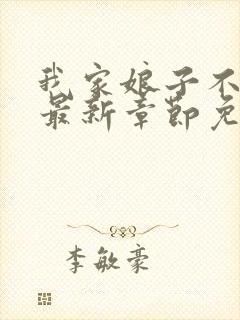 我家娘子不
最新章节免
李敏豪